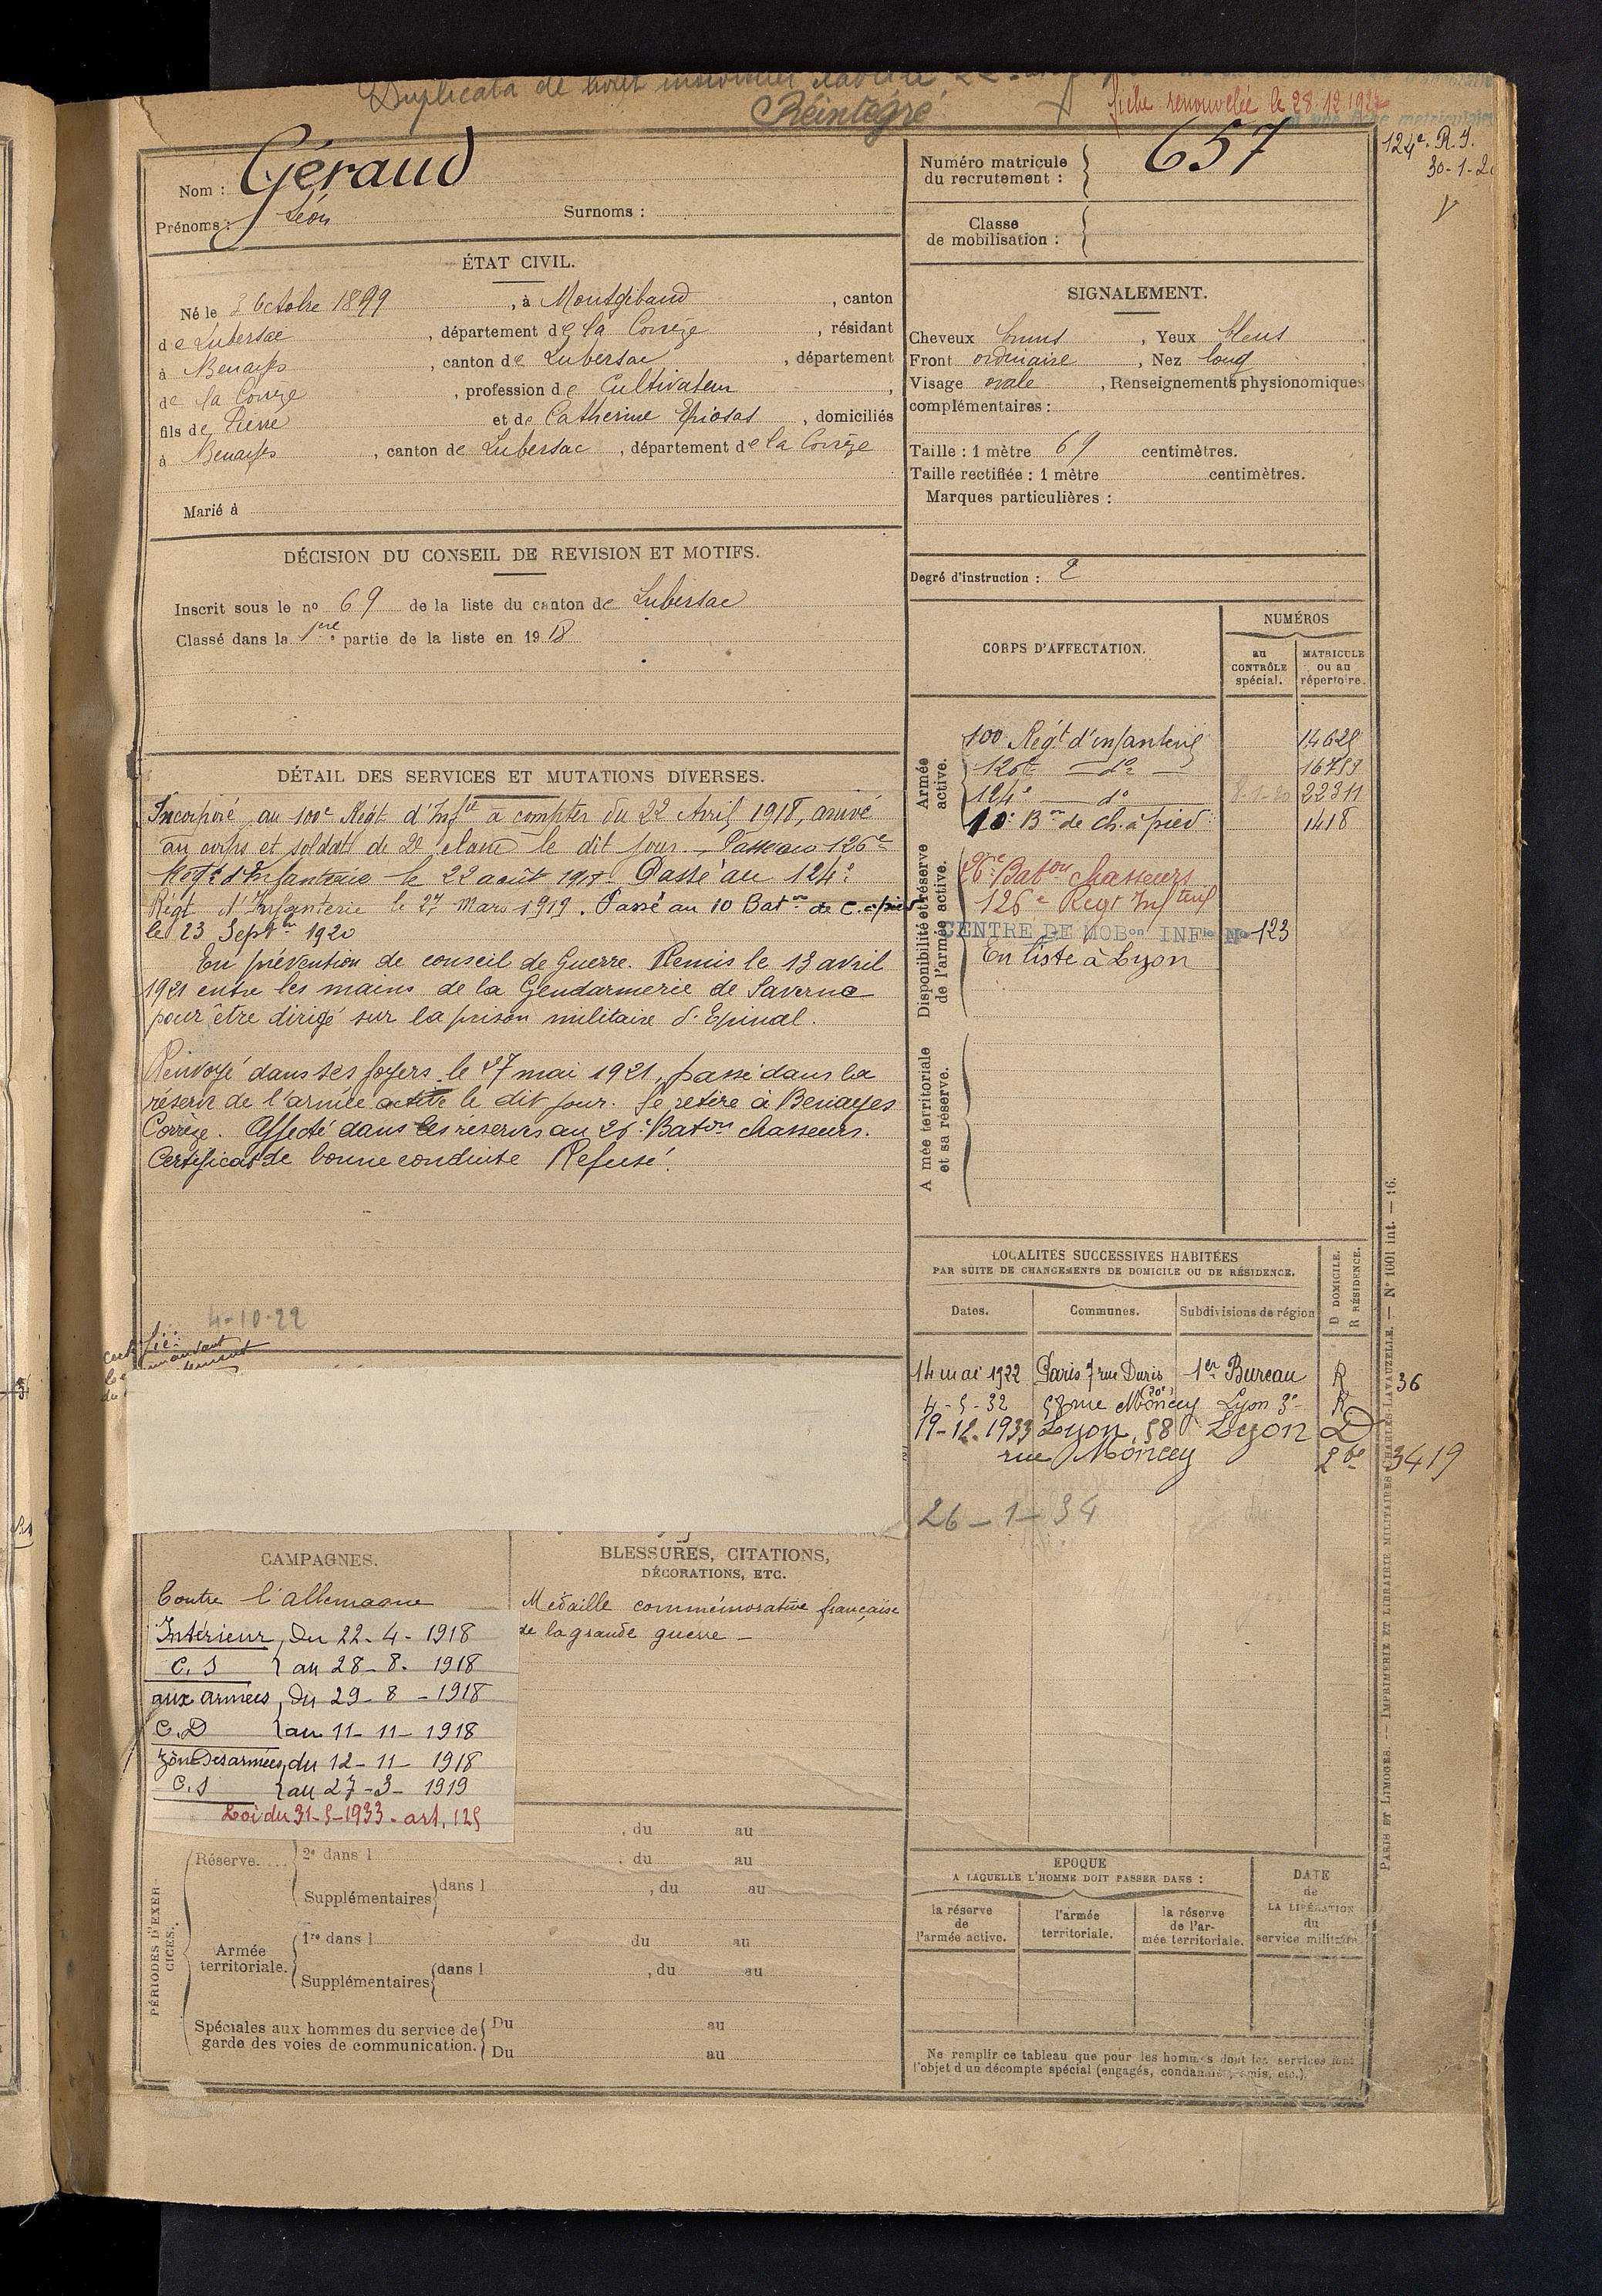 Duplicata de livret
Réintégré
fiche renouvelée le 28.12.1922
124e. R.I.
30-1-2
Nom : Géraud
Prénoms : Léon Surnoms :
Numéro matricule du recrutement : 657
Classe de mobilisation :
ÉTAT CIVIL.
Né le 3 Octobre 1899, à Montgibaud, canton
de Lubersac, département de la Corrèze, résidant
à Benayes, canton de Lubersac, département
de la Corrèze, profession de Cultivateur,
fils de Pierre et de Catherine, domiciliés
à Benayes, canton de Lubersac, département de la Corrèze
Marié à
SIGNALEMENT.
Cheveux bruns, Yeux bleus
Front ordinaire, Nez long
Visage ovale, Renseignements physionomiques
complémentaires :
Taille : 1 mètre 69 centimètres.
Taille rectifiée : 1 mètre centimètres.
Marques particulières :
Degré d'instruction : 2
DÉCISION DU CONSEIL DE REVISION ET MOTIFS.
Inscrit sous le no 69 de la liste du canton de Lubersac
Classé dans la 1ere partie de la liste en 1918
DÉTAIL DES SERVICES ET MUTATIONS DIVERSES.
Incorporé au 100e Régt d'Infie à compter du 22 Avril 1918, arrivé
au corps et soldat de 2e classe le dit jour. Passé au 126e
Régt d'Infanterie le 22 août 1918. Passé au 124e
Régt d'Infanterie le 27 Mars 1919. Passé au 10 Baton de C. à pied
le 23 Septbre 1920
En prévention de conseil de Guerre. Remis le 13 avril
1921 entre les mains de la Gendarmerie de Saverne
pour être dirigé sur la prison militaire d'Epinal.
Renvoyé dans ses foyers le 27 mai 1921, passé dans la
réserve de l'armée active le dit jour. Se retire à Benayes
Corrèze. Affecté dans les réserves au 26e Baton chasseurs.
Certificat de bonne conduite Refusé.
4-10-22
CORPS D'AFFECTATION.
NUMÉROS
au CONTRÔLE spécial.
MATRICULE ou au répertoire.
Armée active.
100 Régt d'infanterie
126e — do —
124e — do 8-1-20 22311
10e Bon de Ch. à pied 1418
Disponibilité et réserve de l'armée active.
26e Baton Chasseurs
126e Regt Infterie
CENTRE DE MOBon INFie No 123
En liste à Lyon
Armée territoriale et sa réserve.
LOCALITÉS SUCCESSIVES HABITÉES
PAR SUITE DE CHANGEMENTS DE DOMICILE OU DE RÉSIDENCE.
Dates. Communes. Subdivisions de région D DOMICILE. R RÉSIDENCE.
14 mai 1922 Paris 7 rue Duris 1er Bureau R 36
(20e)
4-5-32 58 rue Moncey Lyon 3e R
19-12-1933 Lyon, 58 Lyon D
rue Moncey 3419
26-1-34
CAMPAGNES.
Contre l'allemagne
Intérieur, Du 22-4-1918
C.S au 28-8-1918
aux armées, Du 29-8-1918
C.D au 11-11-1918
Zone des armées, du 12-11-1918
C.S au 27-3-1919
Loi du 31-5-1933-art. 125
BLESSURES, CITATIONS,
DÉCORATIONS, ETC.
Médaille commémorative française
de la grande guerre —
PÉRIODES D'EXERCICES.
, du au
Réserve. 2e dans l , du au
Supplémentaires dans l , du au
Armée territoriale.
1re dans l du au
Supplémentaires dans l , du au
Spéciales aux hommes du service de
garde des voies de communication.
Du au
Du au
EPOQUE
A LAQUELLE L'HOMME DOIT PASSER DANS :
la réserve de l'armée active.
l'armée territoriale.
la réserve de l'armée territoriale.
DATE de LA LIBÉRATION du service militaire
Ne remplir ce tableau que pour les hommes dont les services font
l'objet d'un décompte spécial (engagés, condamnés, omis, etc.).
PARIS ET LIMOGES. — IMPRIMERIE ET LIBRAIRIE MILITAIRES CHARLES-LAVAUZELLE. — N° 1001 int. — 16.